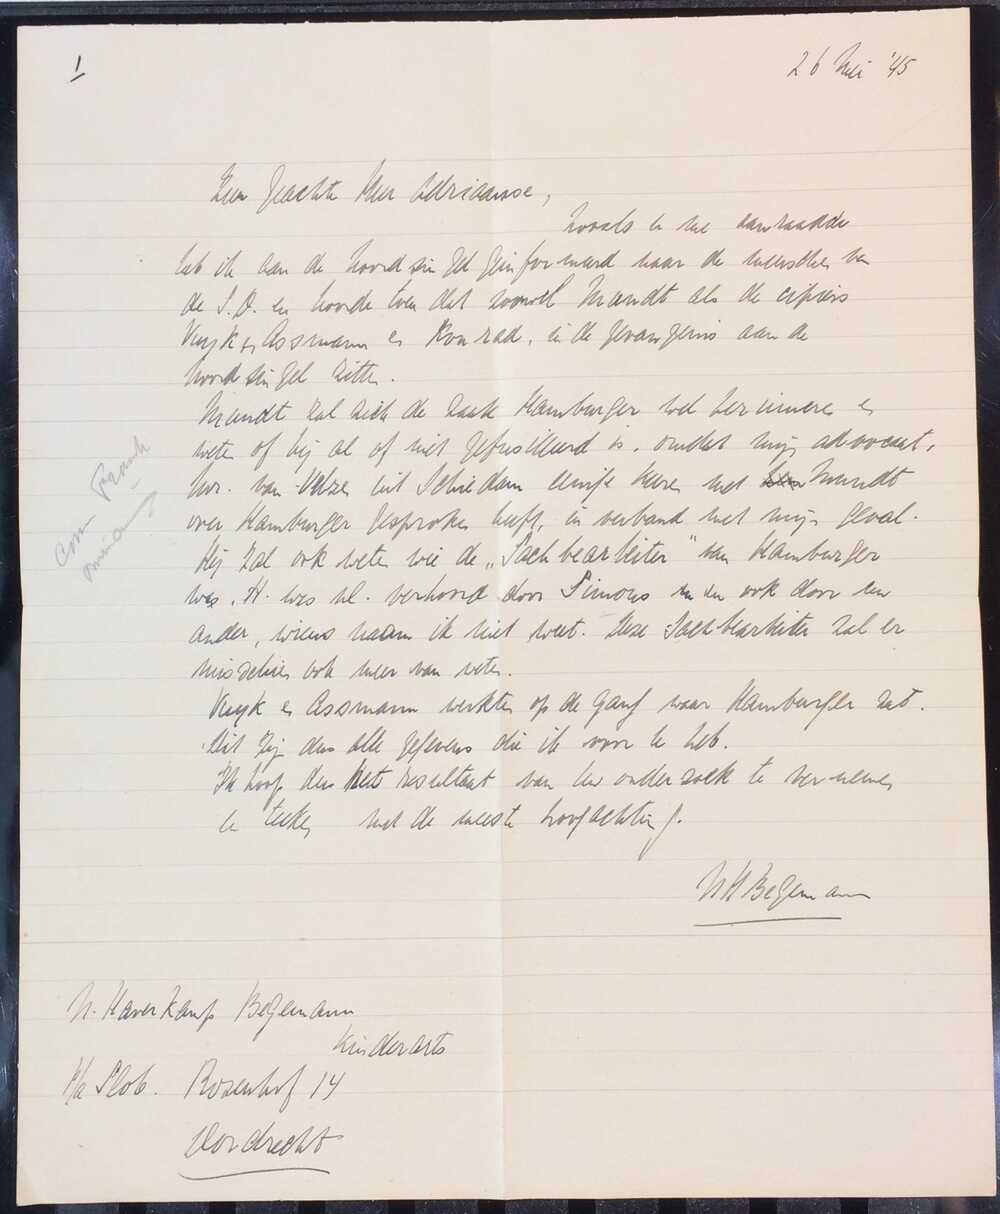 1
26 Mei '45
Zeer Geachte Heer Adriaanse,
Zooals u me aanraadde
heb ik aan de Noordsingel geinformeerd naar de menschen van
de S.D. en hoorde toen dat zoowel Mandt als de cipiers
Kuyk en Assmann en Konrad, in de gevangenis aan de
Noordsingel zitten.
Mandt zal zich de zaak Hamburger wel herinneren en
weten of hij al of niet gefusilleerd is, omdat mijn advocaat,
Mr. van Velzen uit Schiedam eenige keeren met Mandt
over Hamburger gesproken heeft, in verband met mijn geval.
Hij zal ook weten wie de „Sachbearbeiter" van Hamburger
was. H. was nl. verhoord door Simons en ook door een
ander, wiens naam ik niet weet. Deze Sachbearbeiter zal er
misschien ook meer van weten.
Kuyk en Assmann werkten op de gang waar Hamburger zat.
Dit zijn dus alle gegevens die ik voor u heb.
Ik hoop dus het resultaat van uw onderzoek te vernemen
en teeken met de meeste hoogachting.
NHBegemann
N. Haverkamp Begemann
Kinderarts
p/a Slob. Rozenhof 14
Dordrecht
com Frank